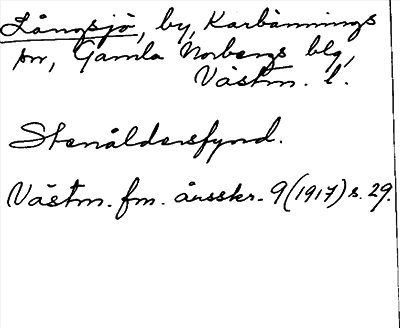 Långsjö, by, Karbännings
sn, Gamla Norbergs blg,
Västm. l.
Stenåldersfynd.
Västm. fm. årsskr. 9 (1917) s. 29.